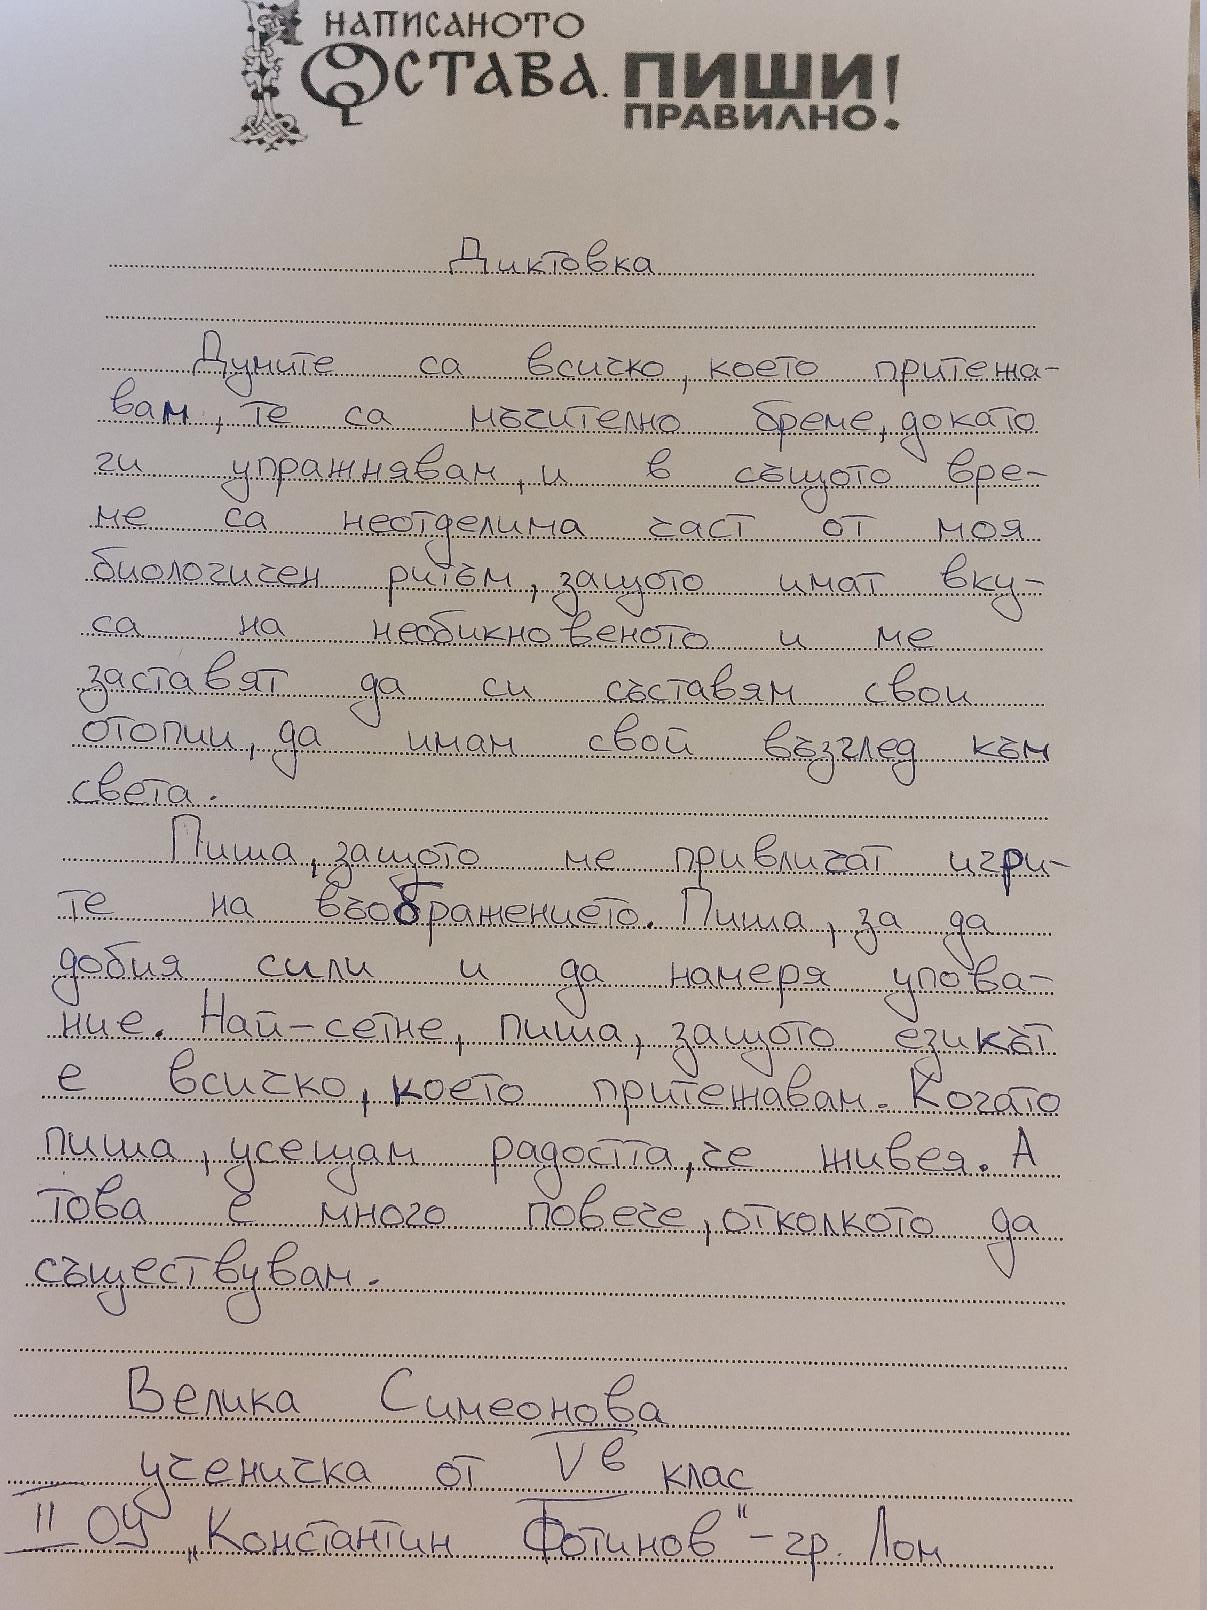 НАПИСАНОТО
ОСТАВА. ПИШИ
ПРАВИЛНО!
Диктовка
Думите са всичко, което притежа-
вам, те са мъчително бреме, докато
ги упражнявам, и в същото вре-
ме са неотделима част от моя
биологичен ритъм, защото имат вку-
са на необикновеното и ме
заставят да си съставям свои
отопии, да имам свой възглед към
света.
Пиша, защото ме привличат игри-
те на въображението. Пиша, за да
добия сили и да намеря упова-
ние. Най-сетне, пиша, защото езикът
е всичко, което притежавам. Когато
пиша, усещам радостта, че живея. А
това е много повече, отколкото да
съществувам.
Велика Симеонова
ученичка от V в клас
II ОУ „Константин Фотинов" - гр. Лом